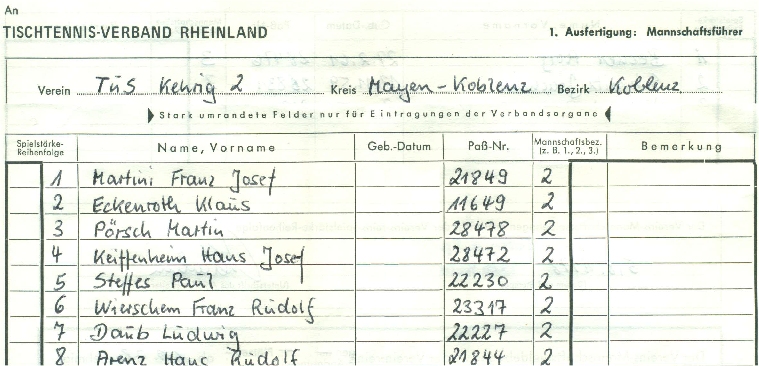 An
TISCHTENNIS-VERBAND RHEINLAND 1. Ausfertigung: Mannschaftsführer
Verein TuS Kehrig 2 Kreis Mayen-Koblenz Bezirk Koblenz
Stark umrandete Felder nur für Eintragungen der Verbandsorgane
Spielstärke-Reihenfolge Name, Vorname Geb.-Datum Paß-Nr. Mannschaftsbez. (z. B. 1., 2., 3.) Bemerkung
1 Martini Franz Josef 21849 2
2 Eckenroth Klaus 11649 2
3 Pörsch Martin 28478 2
4 Keiffenheim Hans Josef 28472 2
5 Steffes Paul 22230 2
6 Wierschem Franz Rudolf 23317 2
7 Daub Ludwig 22227 2
8 Arenz Hans Rudolf 21844 2